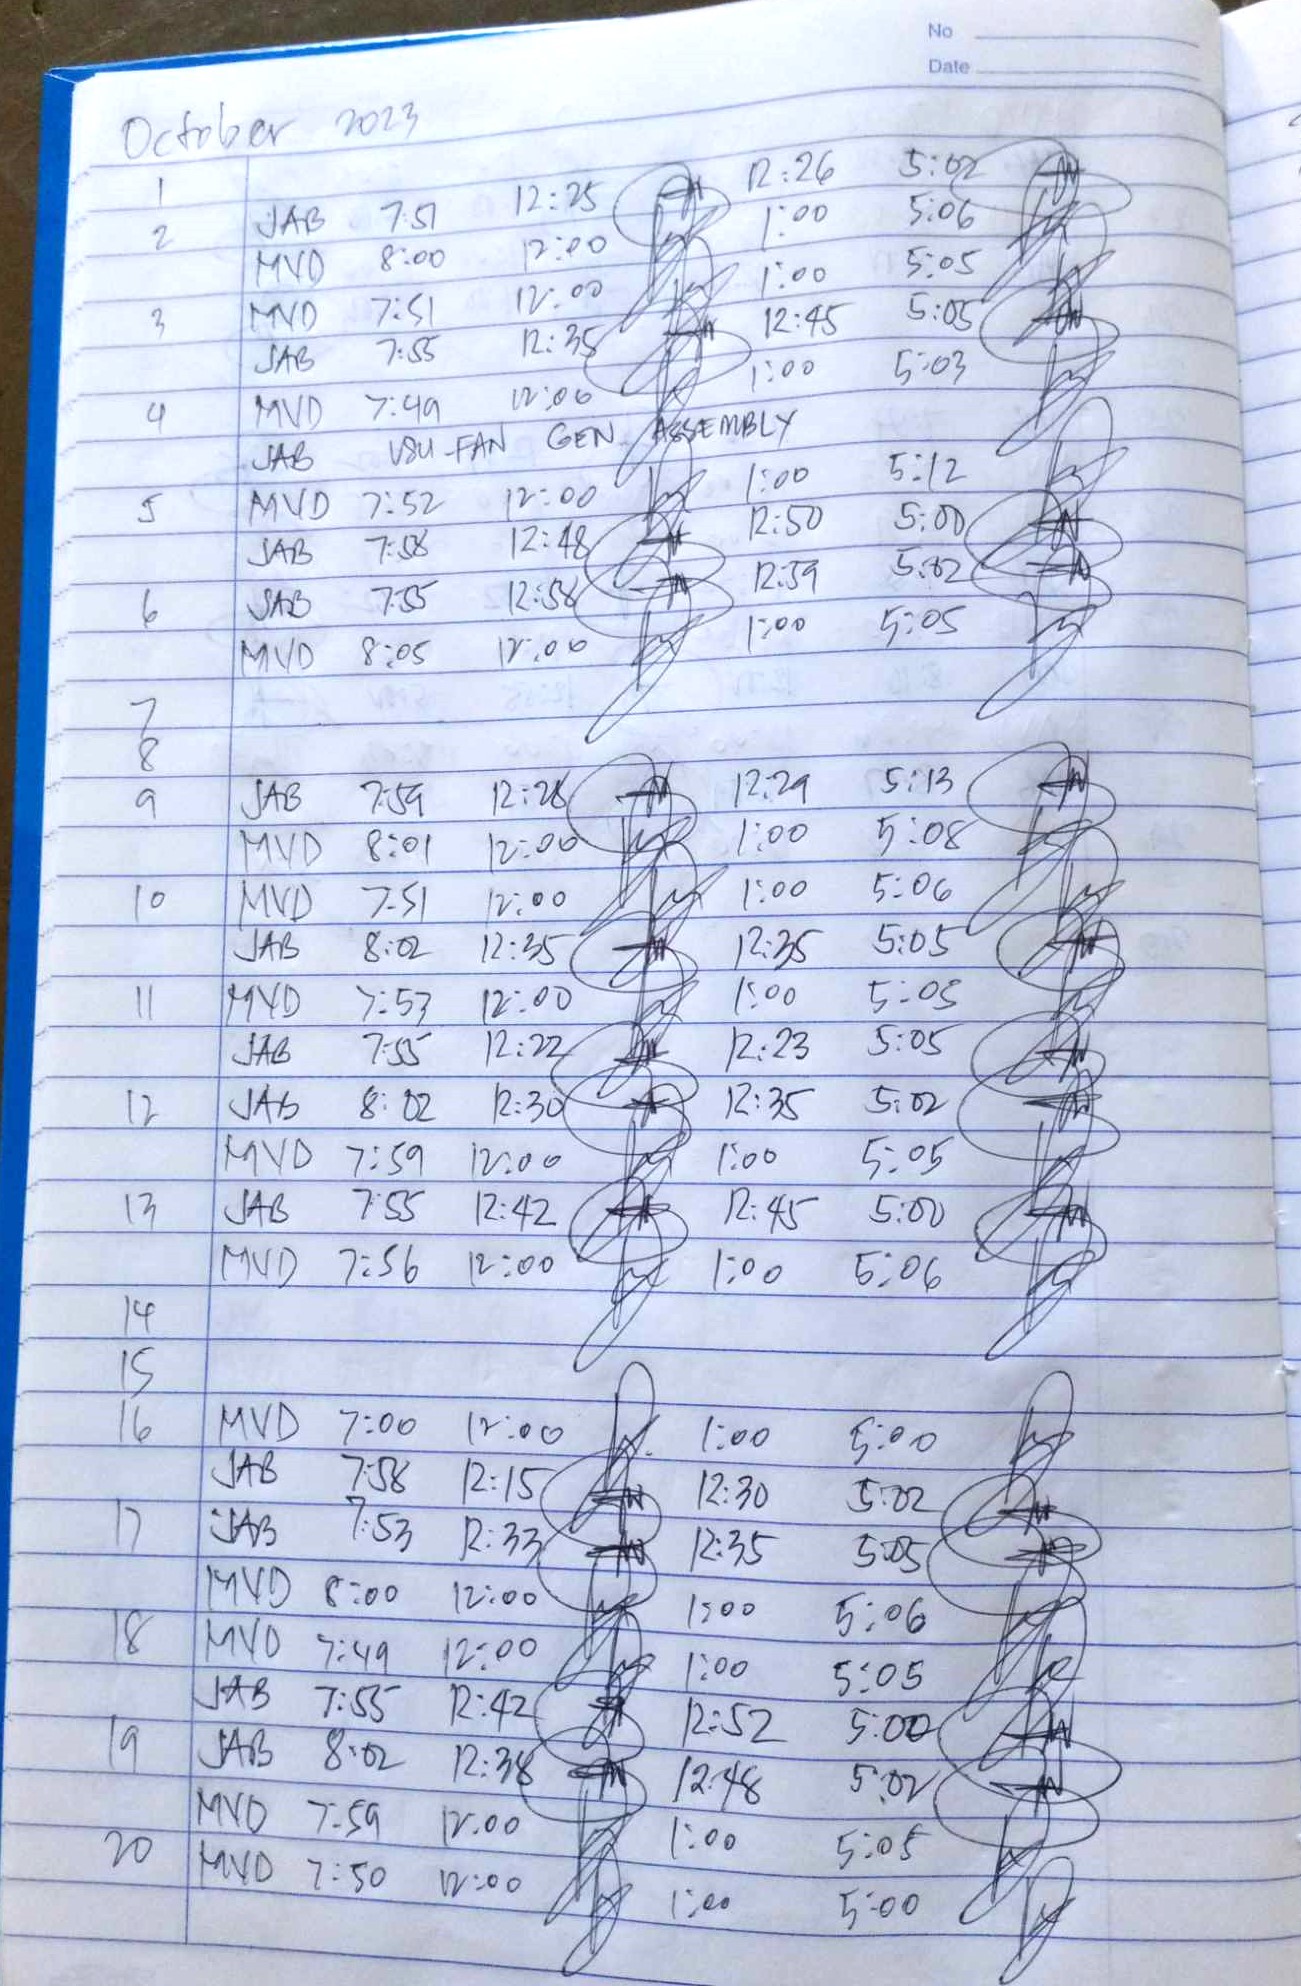 No
Date
October 2023
1
2 JAB 7:51 12:25 12:26 5:02
MVD 8:00 12:00 1:00 5:06
3 MVD 7:51 12:00 1:00 5:05
JAB 7:55 12:35 12:45 5:05
4 MVD 7:49 12:00 1:00 5:03
JAB VSU-FAN GEN ASSEMBLY
5 MVD 7:52 12:00 1:00 5:12
JAB 7:58 12:48 12:50 5:00
6 JAB 7:55 12:58 12:59 5:02
MVD 8:05 12:00 1:00 5:05
7
8
9 JAB 7:59 12:28 12:29 5:13
MVD 8:01 12:00 1:00 5:08
10 MVD 7:51 12:00 1:00 5:06
JAB 8:02 12:35 12:35 5:05
11 MVD 7:53 12:00 1:00 5:05
JAB 7:55 12:22 12:23 5:05
12 JAB 8:02 12:30 12:35 5:02
MVD 7:59 12:00 1:00 5:05
13 JAB 7:55 12:42 12:45 5:00
MVD 7:56 12:00 1:00 5:06
14
15
16 MVD 7:00 12:00 1:00 5:00
JAB 7:58 12:15 12:30 5:02
17 JAB 7:53 12:33 12:35 5:05
MVD 8:00 12:00 1:00 5:06
18 MVD 7:49 12:00 1:00 5:05
JAB 7:55 12:42 12:52 5:00
19 JAB 8:02 12:38 12:48 5:02
MVD 7:59 12:00 1:00 5:05
20 MVD 7:50 12:00 1:00 5:00